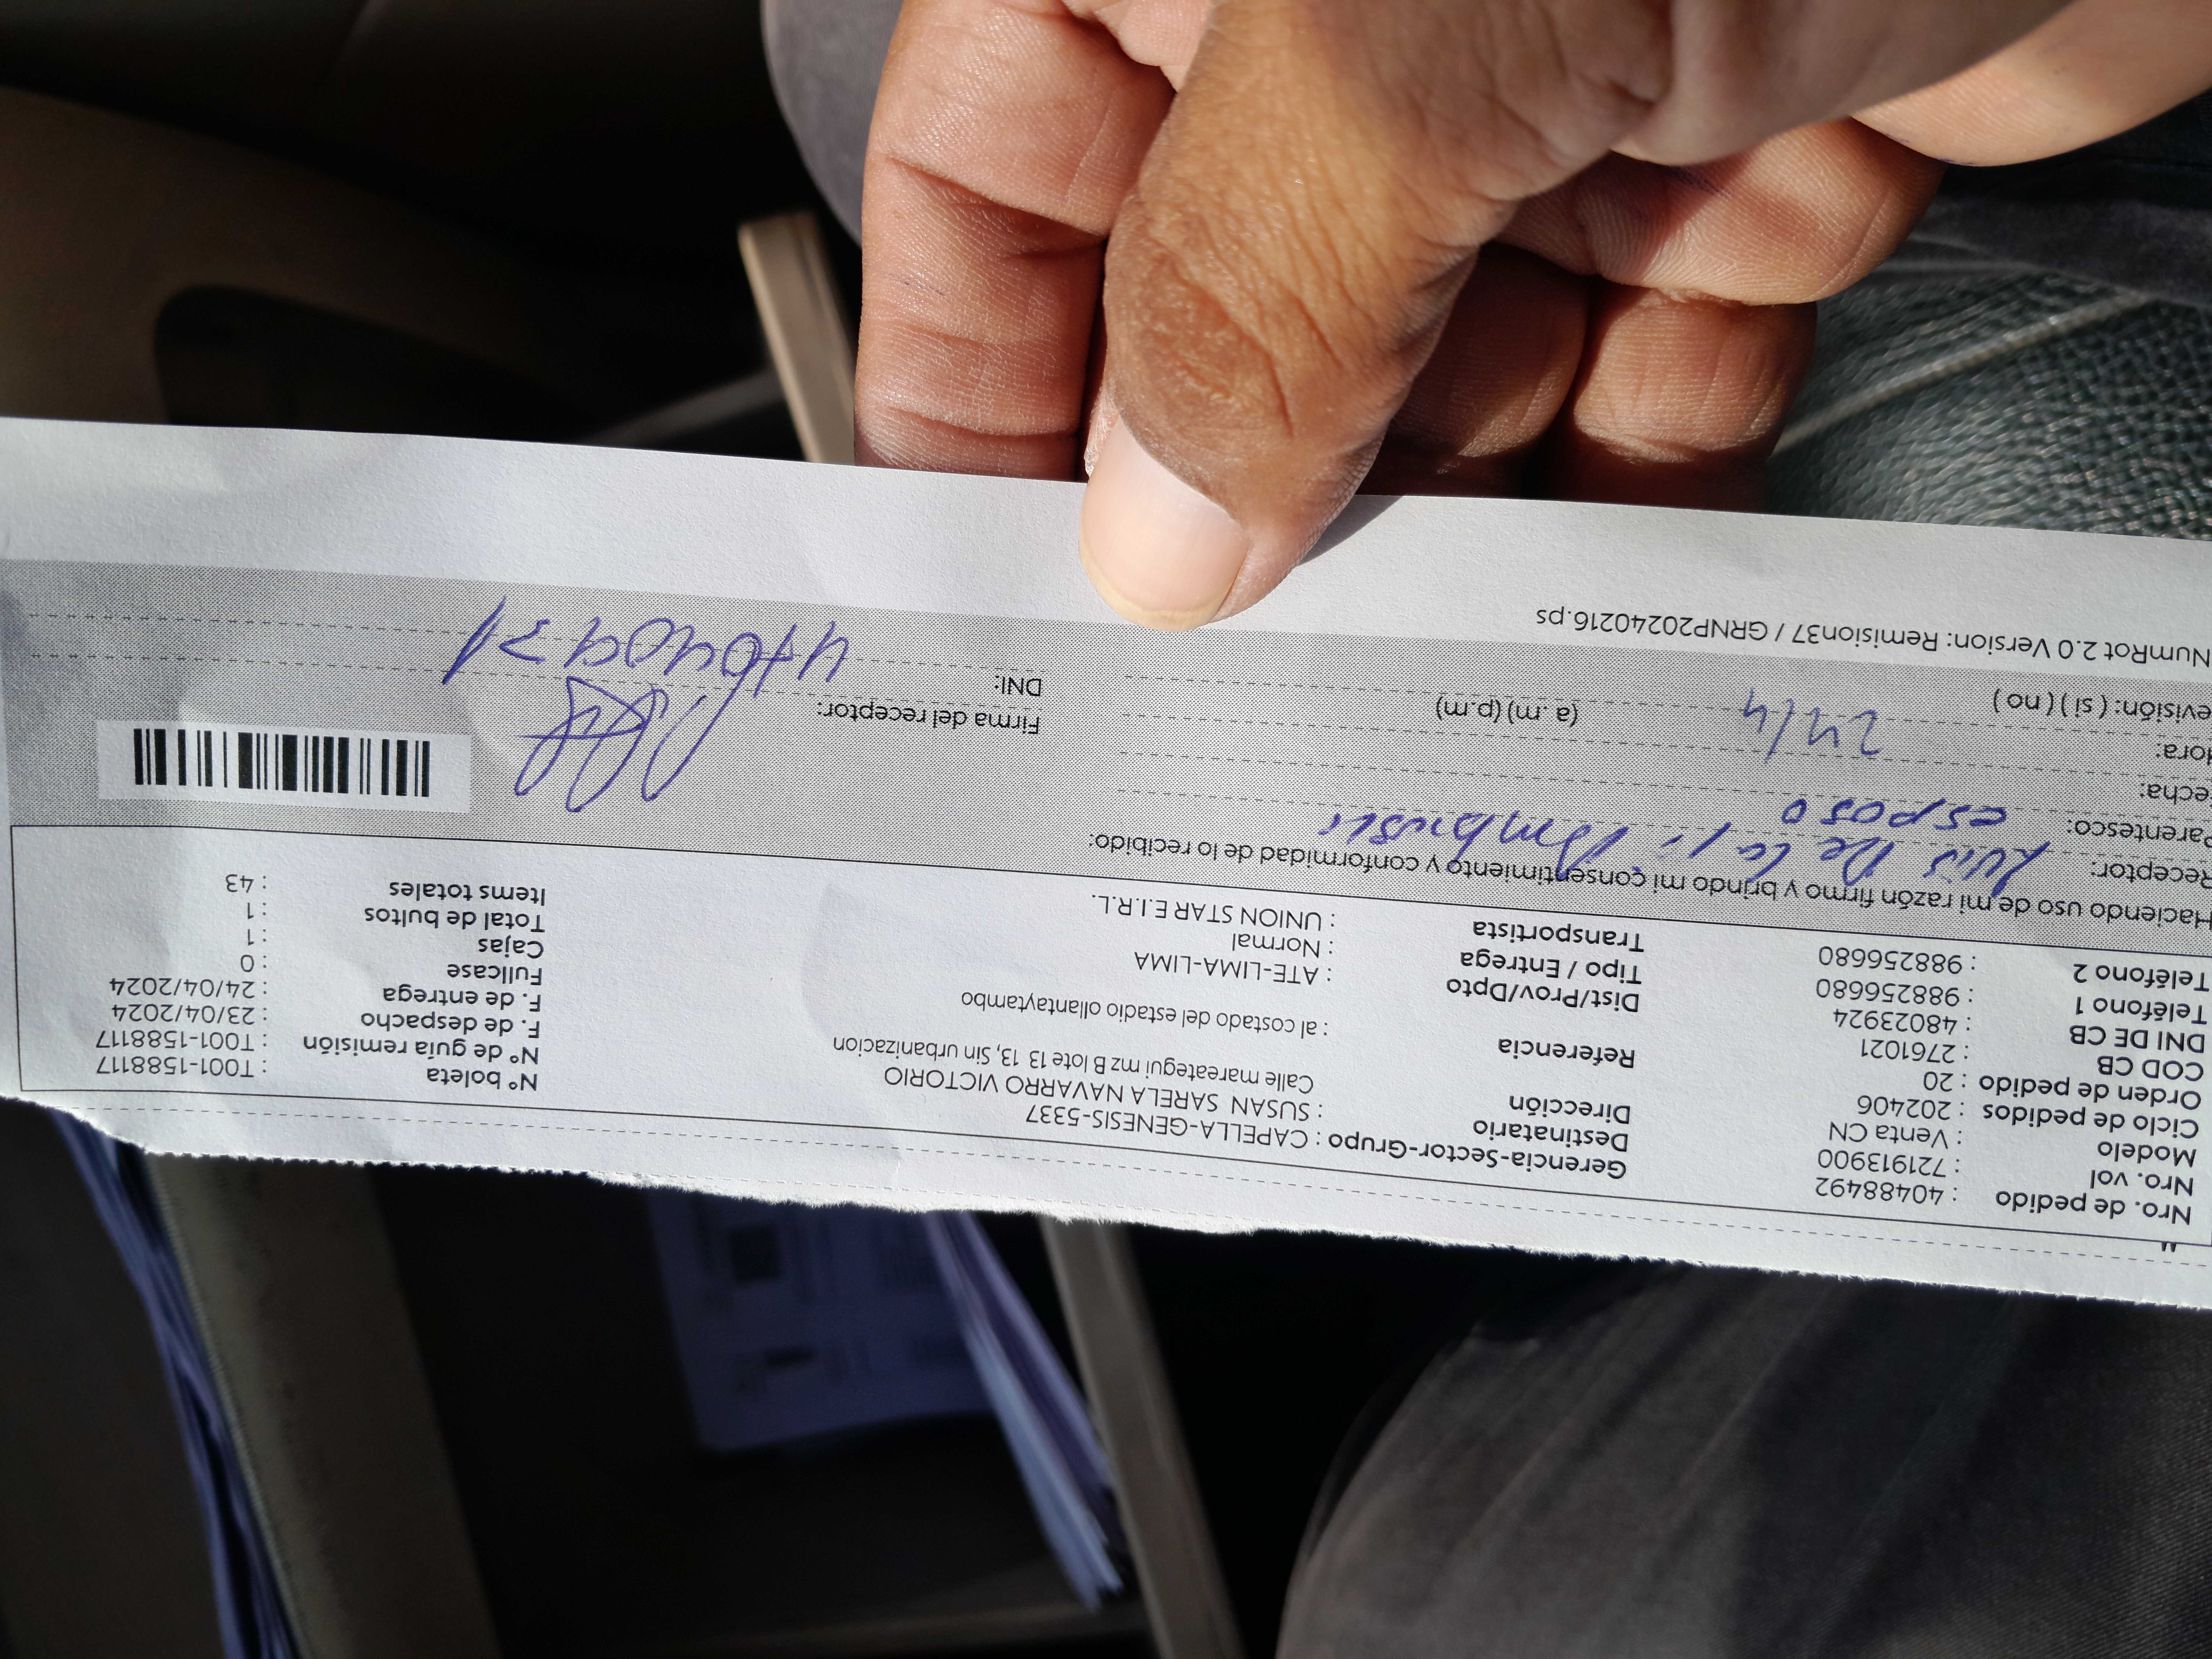 Nro. de pedido : 40488492
Nro. vol : 721913900
Modelo : Venta CN
Ciclo de pedidos : 202406
Orden de pedido : 20
COD CB : 2761021
DNI DE CB : 48023924
Teléfono 1 : 988256680
Teléfono 2 : 988256680
Gerencia-Sector-Grupo : CAPELLA-GENESIS-5337
Destinatario : SUSAN SARELA NAVARRO VICTORIO
Dirección Calle mareategui mz B lote 13 13, Sin urbanizacion
Referencia : al costado del estadio ollantaytambo
Dist/Prov/Dpto : ATE-LIMA-LIMA
Tipo / Entrega : Normal
Transportista : UNION STAR E.I.R.L.
Nº boleta : T001-1588117
Nº de guía remisión : T001-1588117
F. de despacho : 23/04/2024
F. de entrega : 24/04/2024
Fullcase : 0
Cajas : 1
Total de bultos : 1
Items totales : 43
Haciendo uso de mi razón firmo y brindo mi consentimiento y conformidad de lo recibido:
Receptor: Luis De la
Parentesco: esposo
echa:
ora: 24/4 (a. m) (p.m)
evisión: ( si ) ( no )
Firma del receptor:
DNI:
NumRot 2.0 Version: Remision37 / GRNP20240216.ps